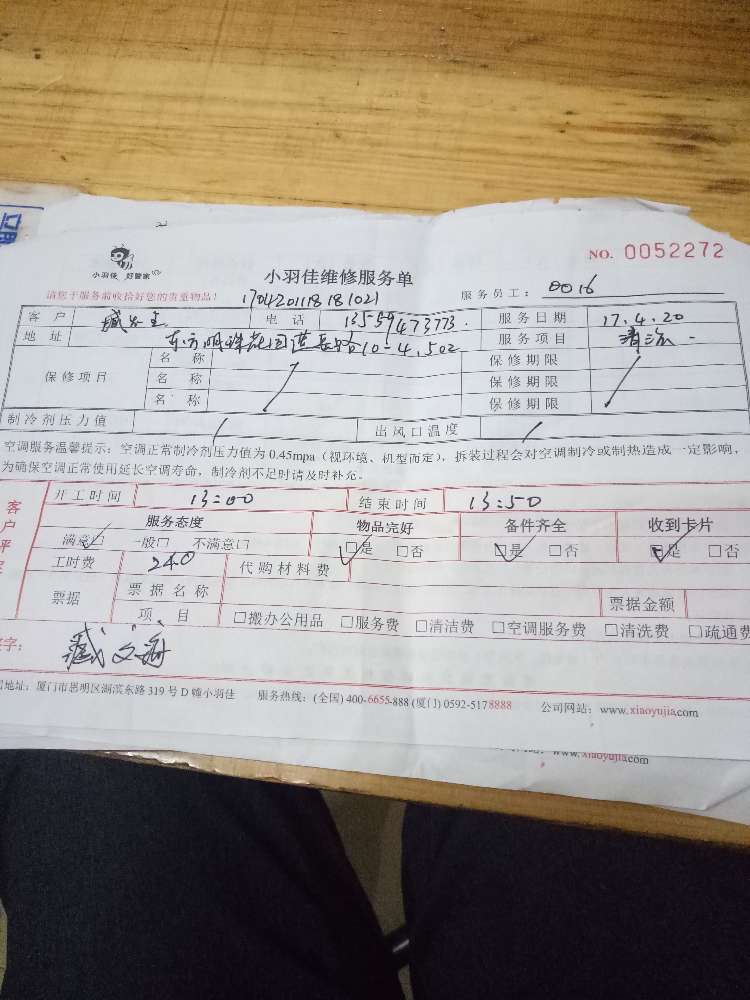 NO. 0052272
小羽佳 好管家
小羽佳维修服务单
请您于服务前收拾好您的贵重物品!
17042011818 1021
服务员工: 0016
客户 臧先生 电话 13559473773 服务日期 17.4.20
地址 东方明珠花园莲花 10-4.502 服务项目 清洗
保修项目 名称 保修期限
名称 保修期限
名称 保修期限
制冷剂压力值 / 出风口温度 /
空调服务温馨提示:空调正常制冷剂压力值为0.45mpa(视环境、机型而定),拆装过程会对空调制冷或制热造成一定影响,
为确保空调正常使用延长空调寿命,制冷剂不足时请及时补充。
客户评定
开工时间 13:00 结束时间 13:50
服务态度 物品完好 备件齐全 收到卡片
满意☑ 一般□ 不满意□ ☑是 □否 ☑是 □否 ☑是 □否
工时费 240 代购材料费
票据 票据名称 票据金额
项目 □搬办公用品 □服务费 □清洁费 □空调服务费 □清洗费 □疏通费
字: 臧文海
地址:厦门市思明区湖滨东路319号D幢小羽佳 服务热线:(全国)400-6655-888(厦门)0592-5178888 公司网站:www.xiaoyujia.com
www.xiaoyujia.com